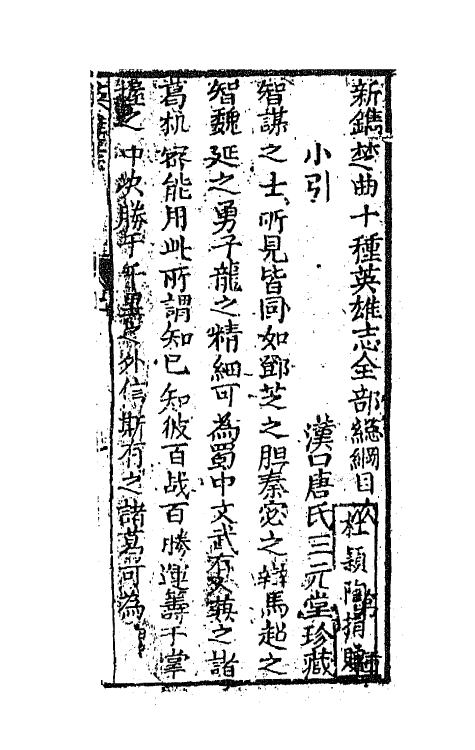 新鐫楚曲十種英雄志全部總綱目次
杜穎陶捐贈
小引
漢口唐氏三元堂珍藏
智謀之士所見皆同如鄧芝之胆秦宓之辯馬超之
智魏延之勇子龍之精細可為蜀中文武雙英之諸
葛抗寄能用此所謂知已知彼百战百勝運籌于掌
握之中决勝于千里之外信斯有之諸葛可為